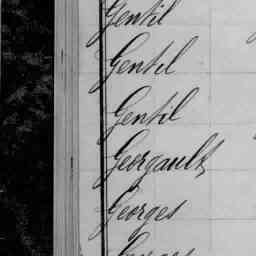 Gentil
Gentil
Gentil
Georgault
Georges
Georges